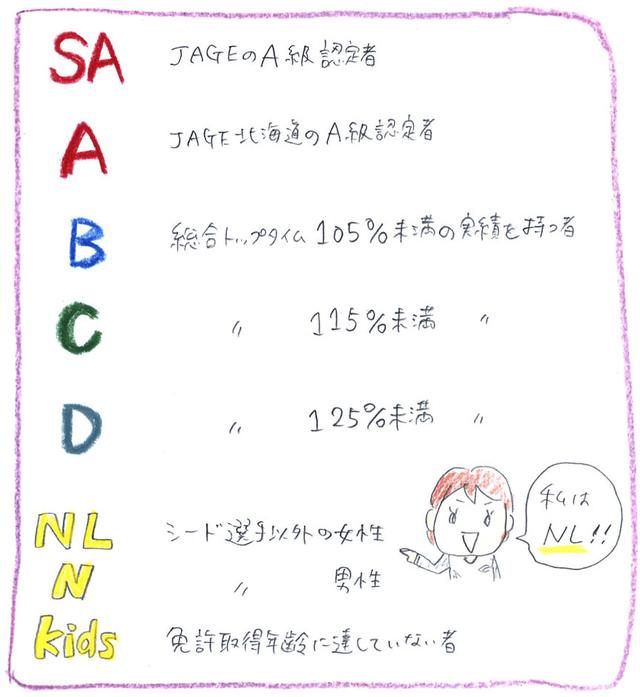 SA JAGEのA級認定者
A JAGE北海道のA級認定者
B 総合トップタイム105%未満の実績を持つ者
C 〃 115%未満 〃
D 〃 125%未満 〃
私は
NL!!
NL シード選手以外の女性
N 〃 男性
kids 免許取得年齢に達していない者